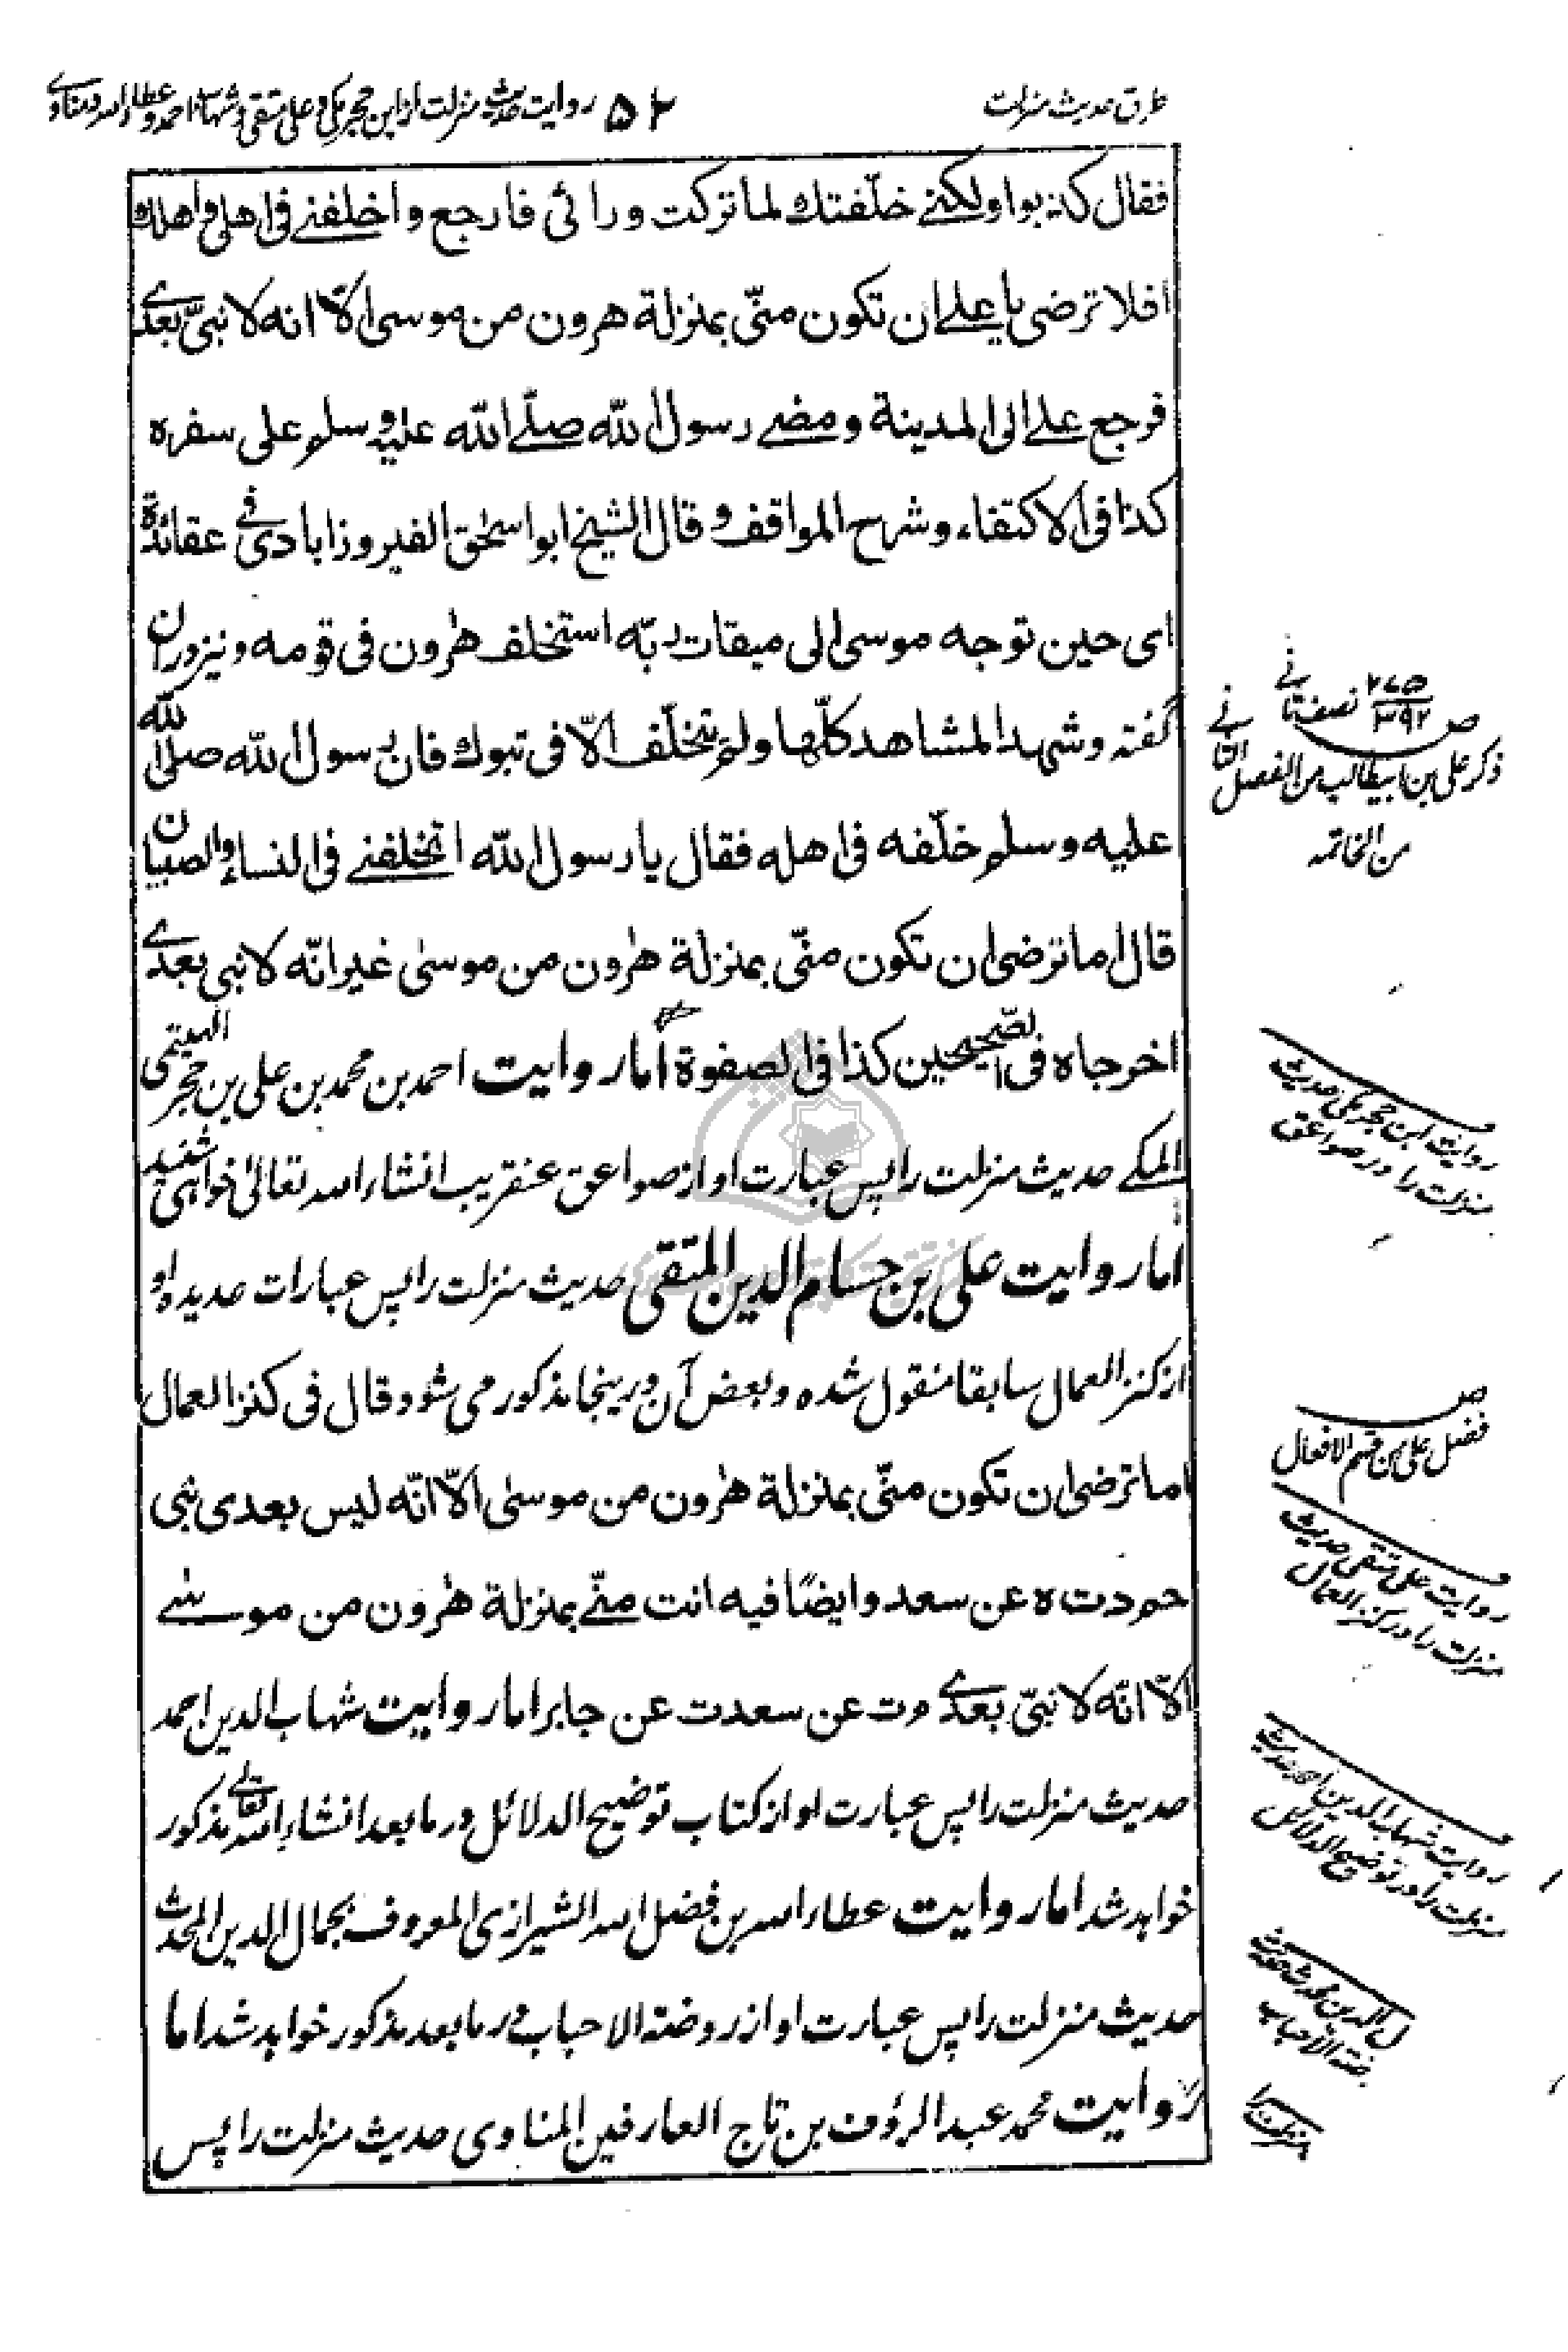 طرق حدیث منزلت
۵۲
روایت حدیث منزلت از ابن حجر مکی و علی متقی و شهاب احمد و عطاء الله و مناوی
فقال كذبوا ولكنے خلّفتك لما تركت ورائی فارجع واخلفنے فی اهلی واهلك
افلا ترضی یا علے ان تكون منّی بمنزلة هرون من موسی الّا انه لا نبیّ بعدے
فرجع علے الی المدینة ومضے رسول اللّه صلّے اللّه علیه وسلم علی سفره
كذا فی الاكتفاء وشرح المواقف وقال الشیخ ابو اسحٰق الفیروزابادی فی عقائده
ای حین توجه موسی الی میقات ربّه استخلف هٰرون فی قومه و نیز دران
گفته وشهد المشاهد كلّها ولم یتخلّف الّا فی تبوك فان رسول اللّه صلی اللّه
علیه وسلم خلّفه فی اهله فقال یا رسول اللّه اتخلفنے فی النساء والصبیان
قال اما ترضی ان تكون منّی بمنزلة هٰرون من موسیٰ غیر انّه لا نبی بعدے
اخرجاه فی الصّحیحین كذا فی الصفوة اما روایت احمد بن محمد بن علی بن حجر الهیتمی
المكے حدیث منزلت را پس عبارت او از صواعق عنقریب انشاء الله تعالیٰ خواهی شنید
اما روایت علی بن حسام الدین المتقی حدیث منزلت را پس عبارات عدیده او
از کنز العمال سابقا منقول شده و بعض آن درینجا مذکور می شود قال فی کنز العمال
اما ترضی ان تكون منّی بمنزلة هٰرون من موسیٰ الّا انّه لیس بعدی نبی
حم د ت ه عن سعد وایضًا فیه انت منّے بمنزلة هٰرون من موسےٰ
الّا انّه لا نبیّ بعدے م ت عن سعد ت عن جابر اما روایت شهاب الدین احمد
حدیث منزلت را پس عبارت او از کتاب توضیح الدلائل در ما بعد انشاء الله تعالے مذکور
خواهد شد اما روایت عطاء الله بن فضل الله الشیرازی المعروف بجمال الدین المحدث
حدیث منزلت را پس عبارت او از روضة الاحباب در ما بعد مذکور خواهد شد اما
روایت محمد عبد الرؤف بن تاج العارفین المناوی حدیث منزلت را پس
ص ۲۷۵/۳۹۲ نصف ثانے
ذکر علی بن ابیطالب من الفصل الثانے
من الخاتمه
روایت ابن حجر مکی حدیث
منزلت را در صواعق
ص
فضل علی من قسم الافعال
روایت علی متقی حدیث
منزلت را در کنز العمال
روایت شهاب الدین احمد حدیث
منزلت را در توضیح الدلائل
ل الدین محدث حدیث
ضة الاحباب